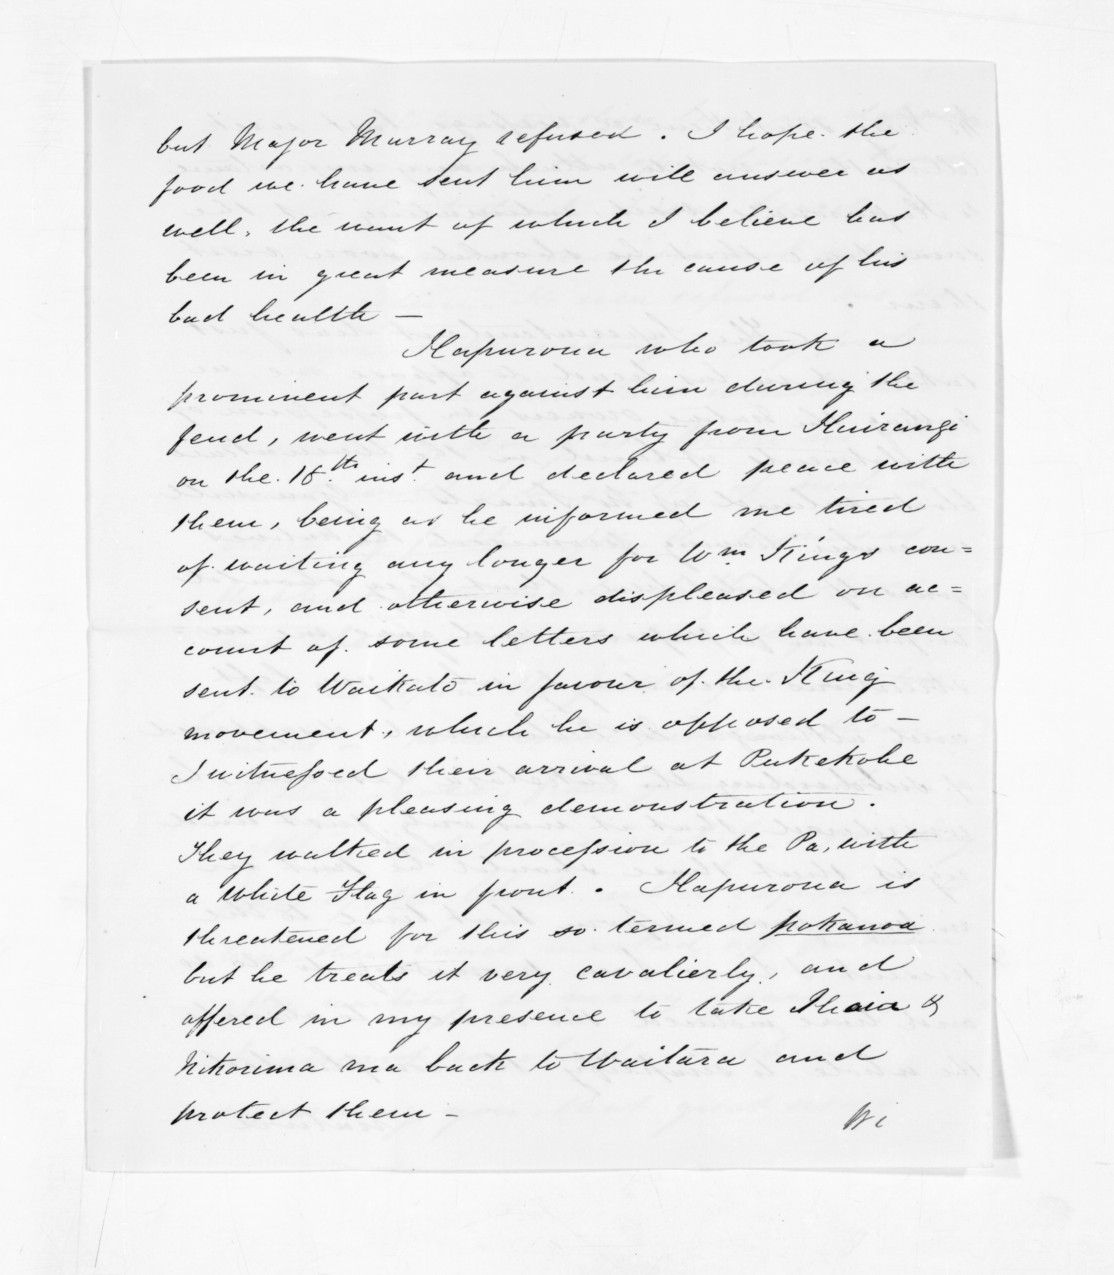 but Major Murray refused. I hope the
food we have sent him will answer as
well, the want of which I believe has
been in great measure the cause of his
bad health —
Hapurona who took a
prominent part against him during the
feud, went with a party from Huirangi
on the 18th inst and declared peace with
them, being as he informed me tired
of waiting any longer for Wm Kings con=
sent, and otherwise displeased on ac=
count of some letters which have been
sent to Waikato in favour of the King
movement, which he is opposed to —
I witnessed their arrival at Pukekohe
it was a pleasing demonstration.
They walked in procession to the Pa, with
a White Flag in front. Hapurona is
threatened for this so termed pokanoa
but he treats it very cavalierly, and
offered in my presence to take Ihaia &
Nikorima ma back to Waitara and
protect them —
Wi